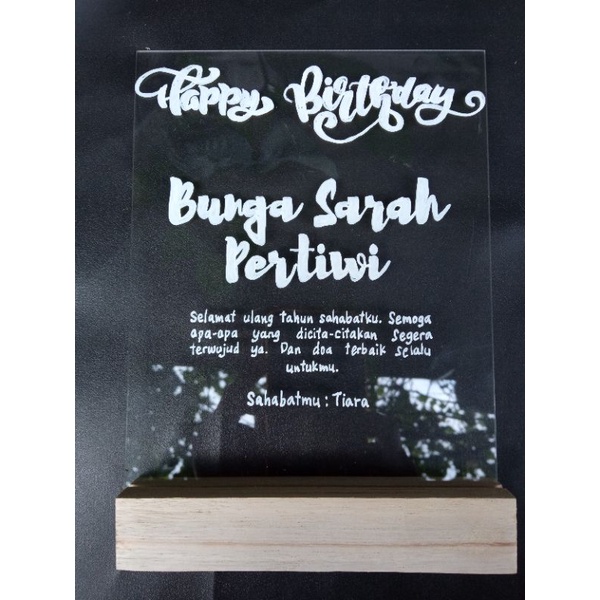 Happy Birthday
Bunga Sarah
Pertiwi
Selamat ulang tahun sahabatku. Semoga
apa-apa yang dicita-citakan segera
terwujud ya. Dan doa terbaik selalu
untukmu.
Sahabatmu : Tiara